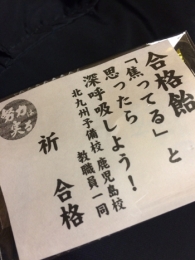 合格飴
「焦ってる」と
思ったら
深呼吸しよう！
北九州予備校 鹿児島校
教職員一同
祈 合格
努力は
実る